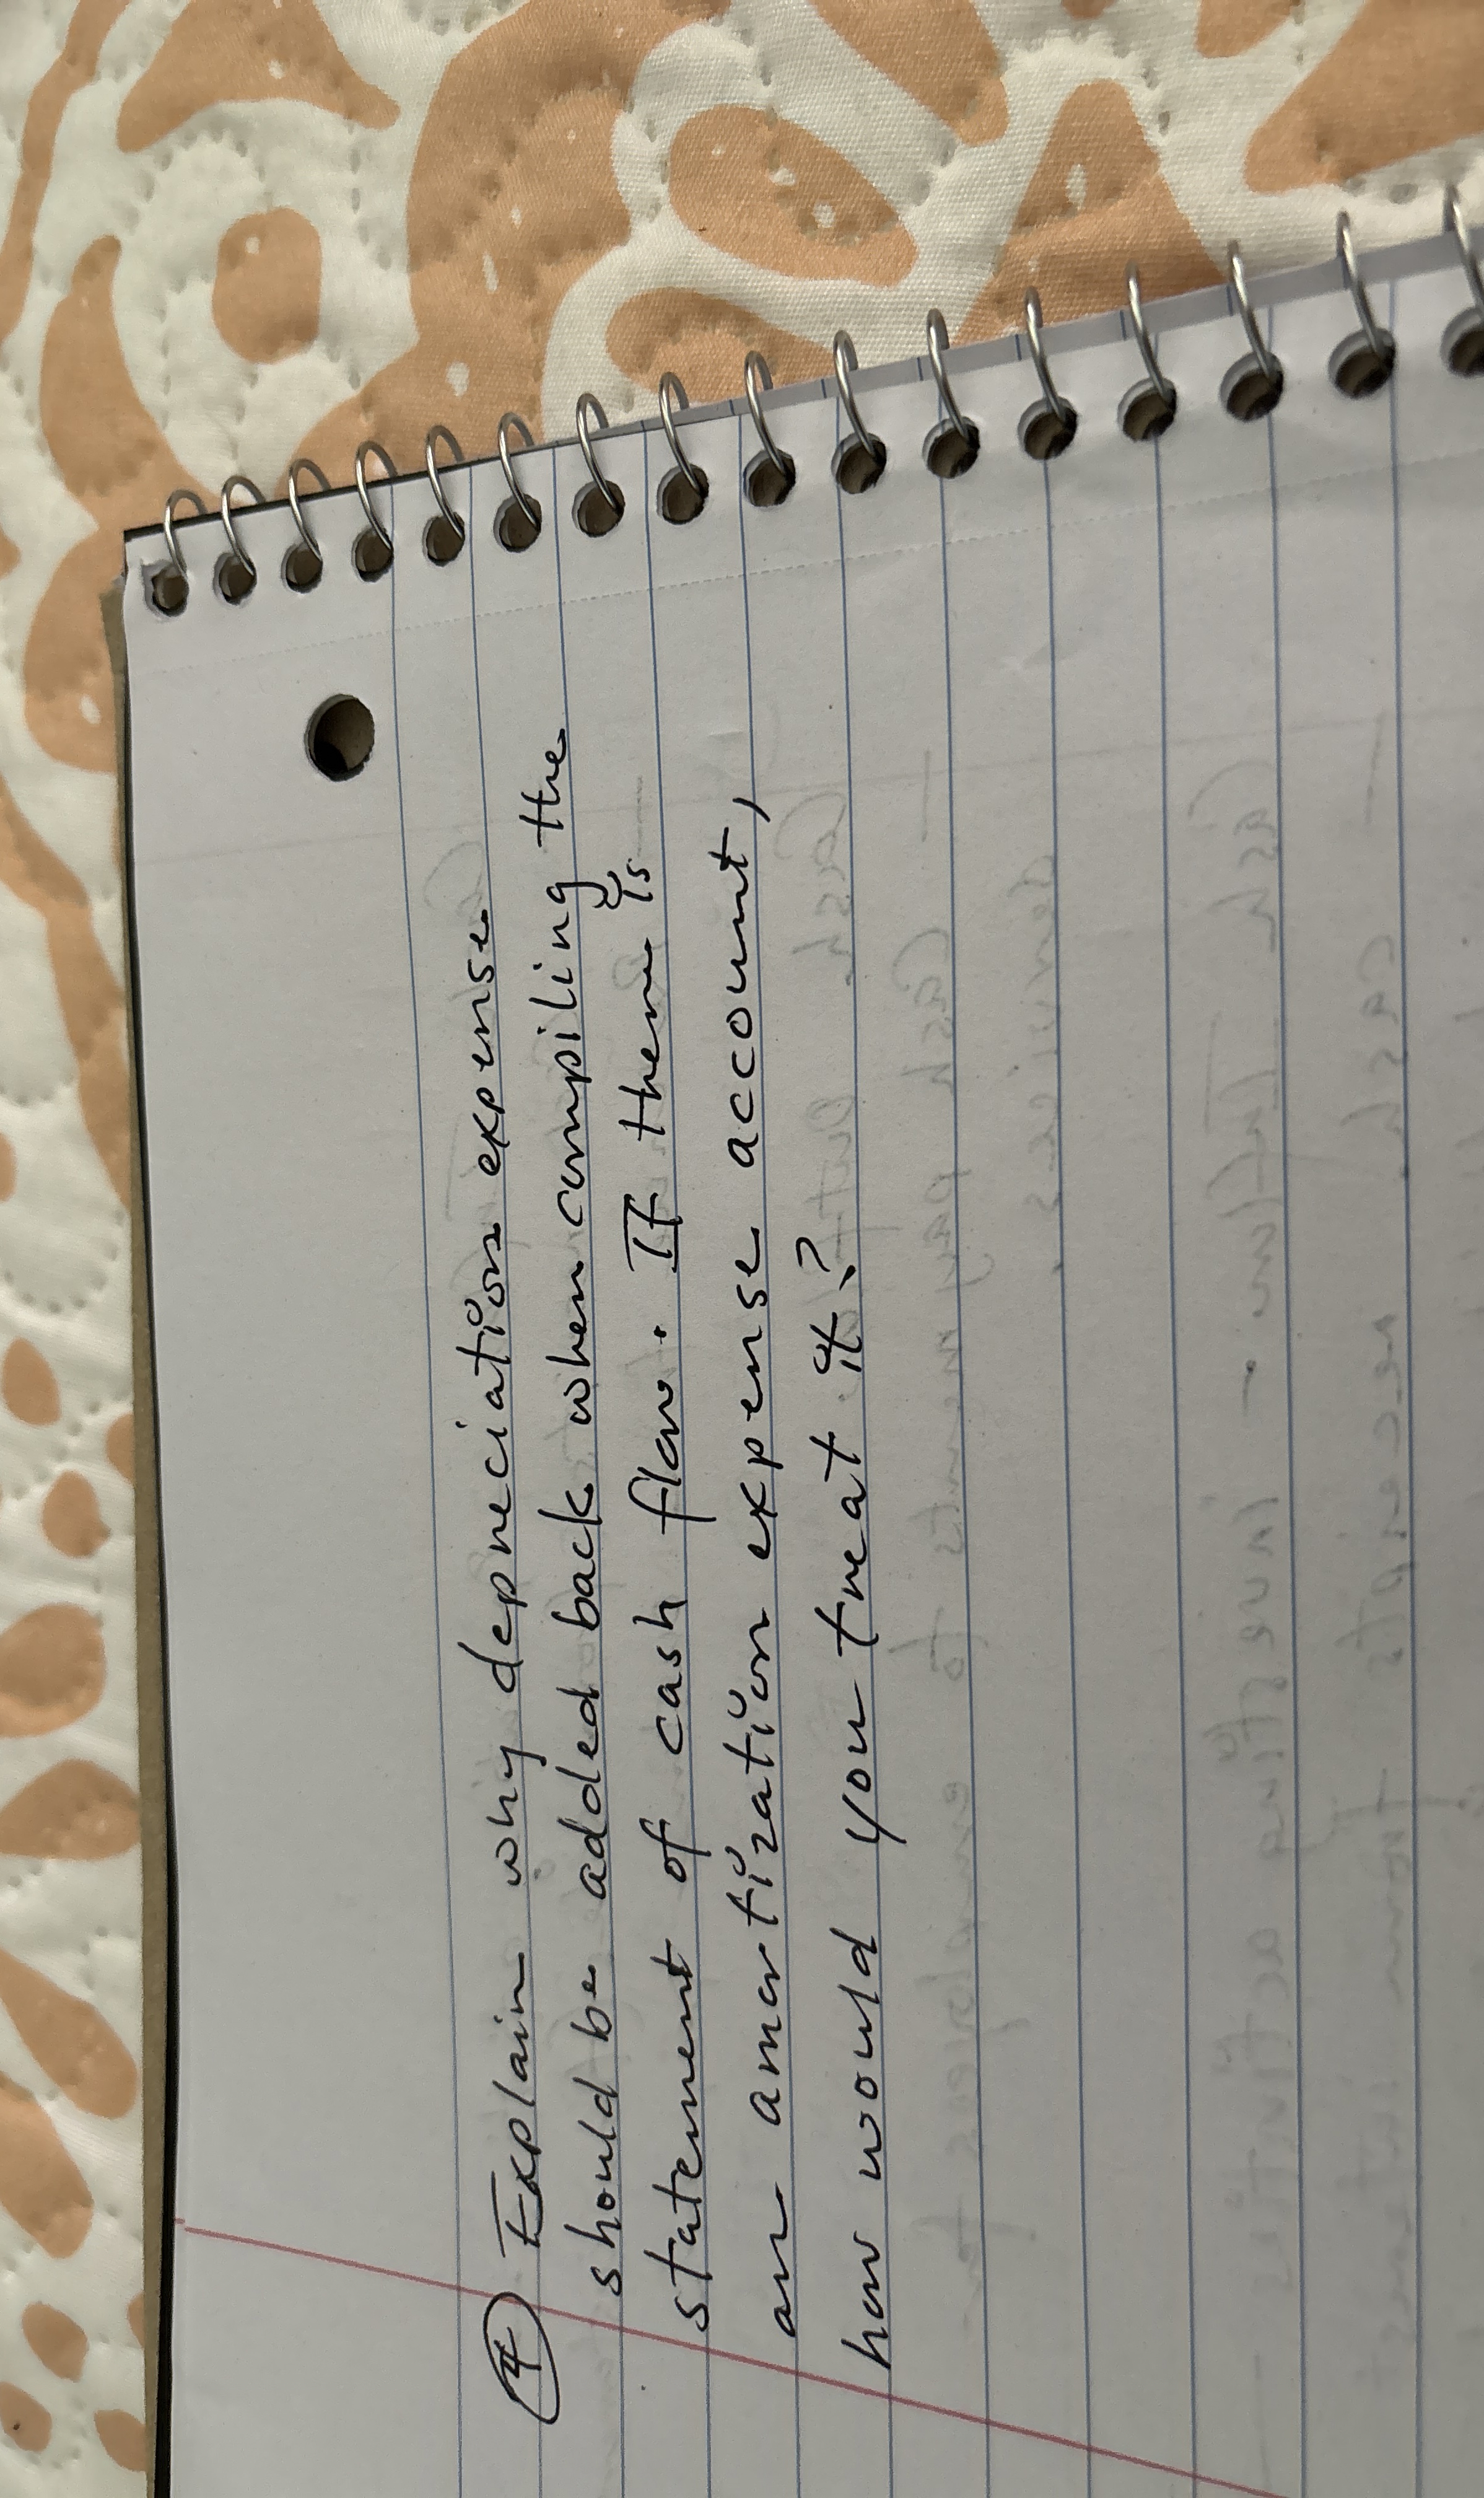 ④ Explain why depreciation expense
should be added back when compiling the
statement of cash flow. If there is
an amortization expense account,
how would you treat it?